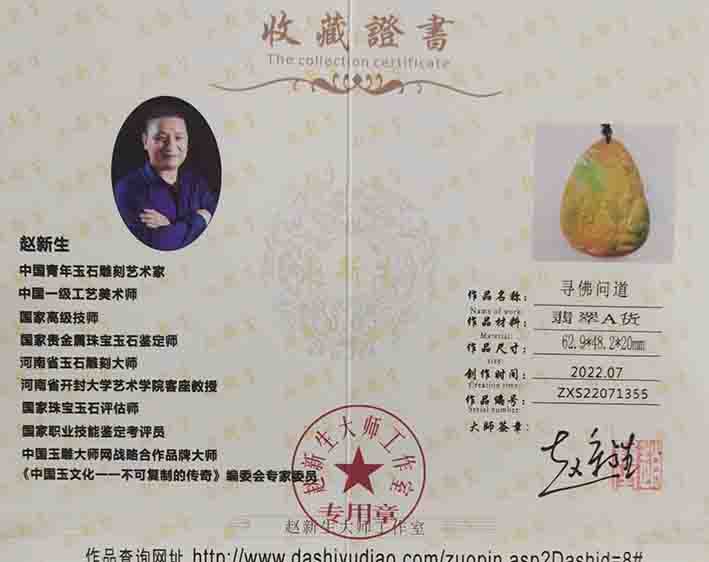 收藏證書
The collection certificate
赵新生
中国青年玉石雕刻艺术家
中国一级工艺美术师
国家高级技师
国家贵金属珠宝玉石鉴定师
河南省玉石雕刻大师
河南省开封大学艺术学院客座教授
国家珠宝玉石评估师
国家职业技能鉴定考评员
中国玉雕大师网战略合作品牌大师
《中国玉文化一一不可复制的传奇》编委会专家委员
作品名称： 寻佛问道
Name of work:
作品材料： 翡翠A货
Material:
作品尺寸： 62.9*48.2*20mm
size:
创作时间： 2022.07
Creation time:
作品编号： ZXS22071355
Serial number:
大师签章：
赵新生
赵新生大师工作室
专用章
赵新生大师工作室
作品查询网址 http://www.dashiyudiao.com/zuopin.asp?Dashid=8#